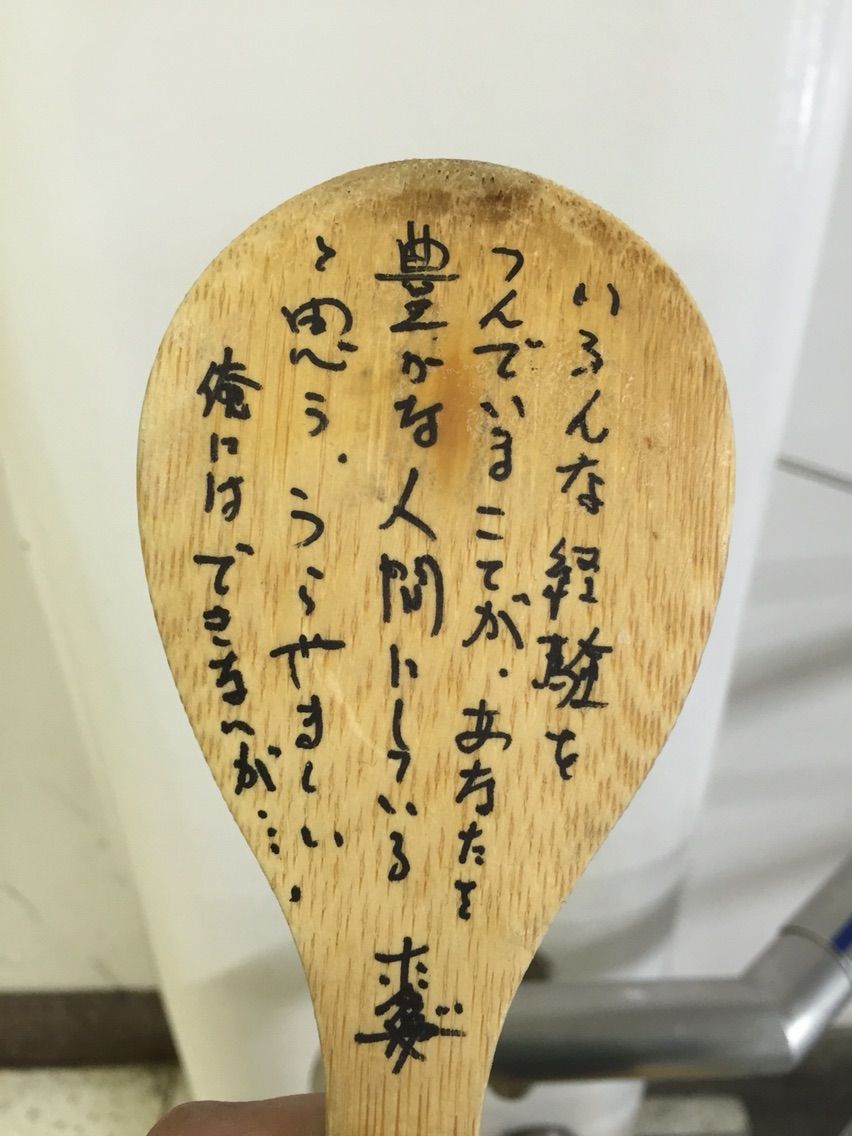 いろんな経験を
つんでいまことが、あなたを
豊かな人間にしている
と思う。うらやましい。
俺にはできないが…